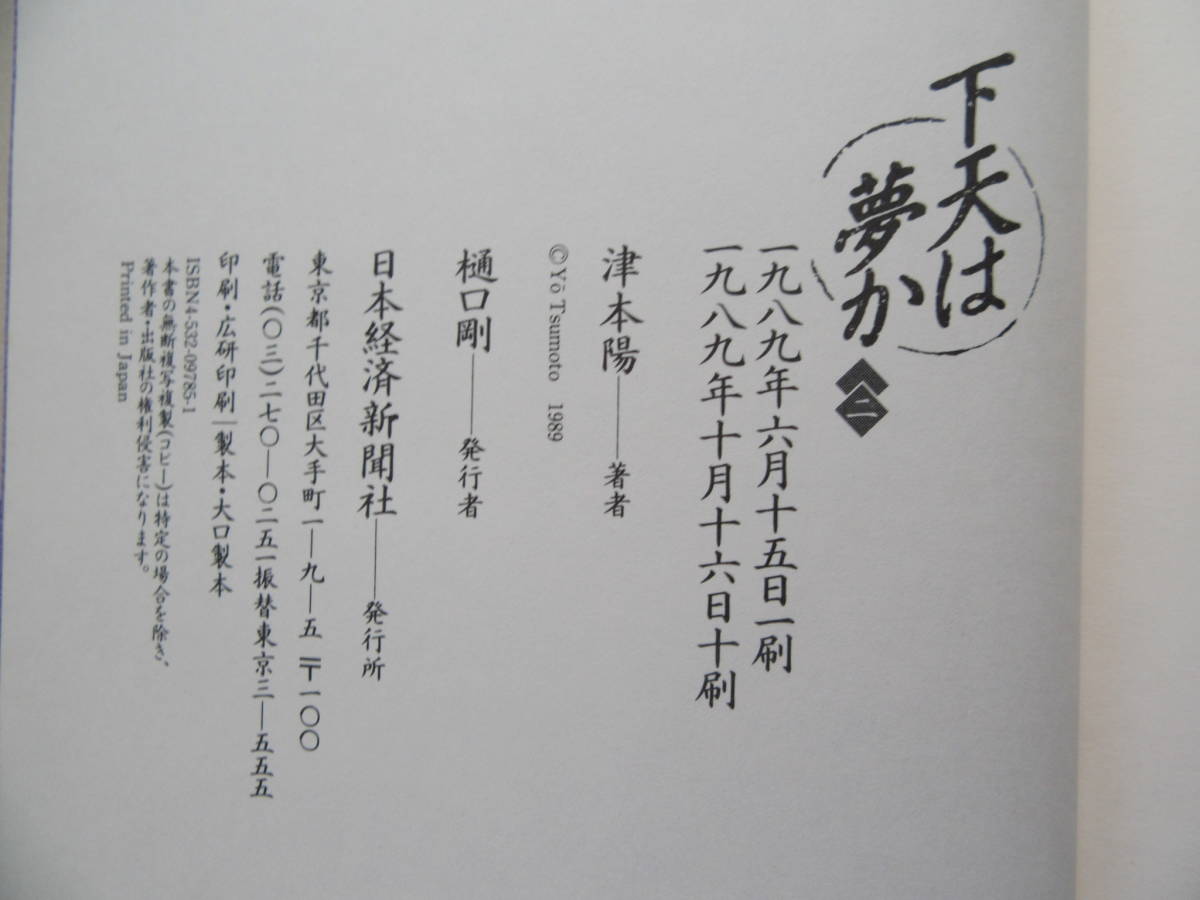 下天は
夢か
二
一九八九年六月十五日一刷
一九八九年十月十六日十刷
津本陽——著者
©Yō Tsumoto 1989
樋口剛——発行者
日本経済新聞社——発行所
東京都千代田区大手町一—九—五 〒一〇〇
電話(〇三)二七〇—〇二五一振替東京三—五五五
印刷・広研印刷|製本・大口製本
ISBN4-532-09785-1
本書の無断複写複製(コピー)は特定の場合を除き、
著作者・出版社の権利侵害になります。
Printed in Japan